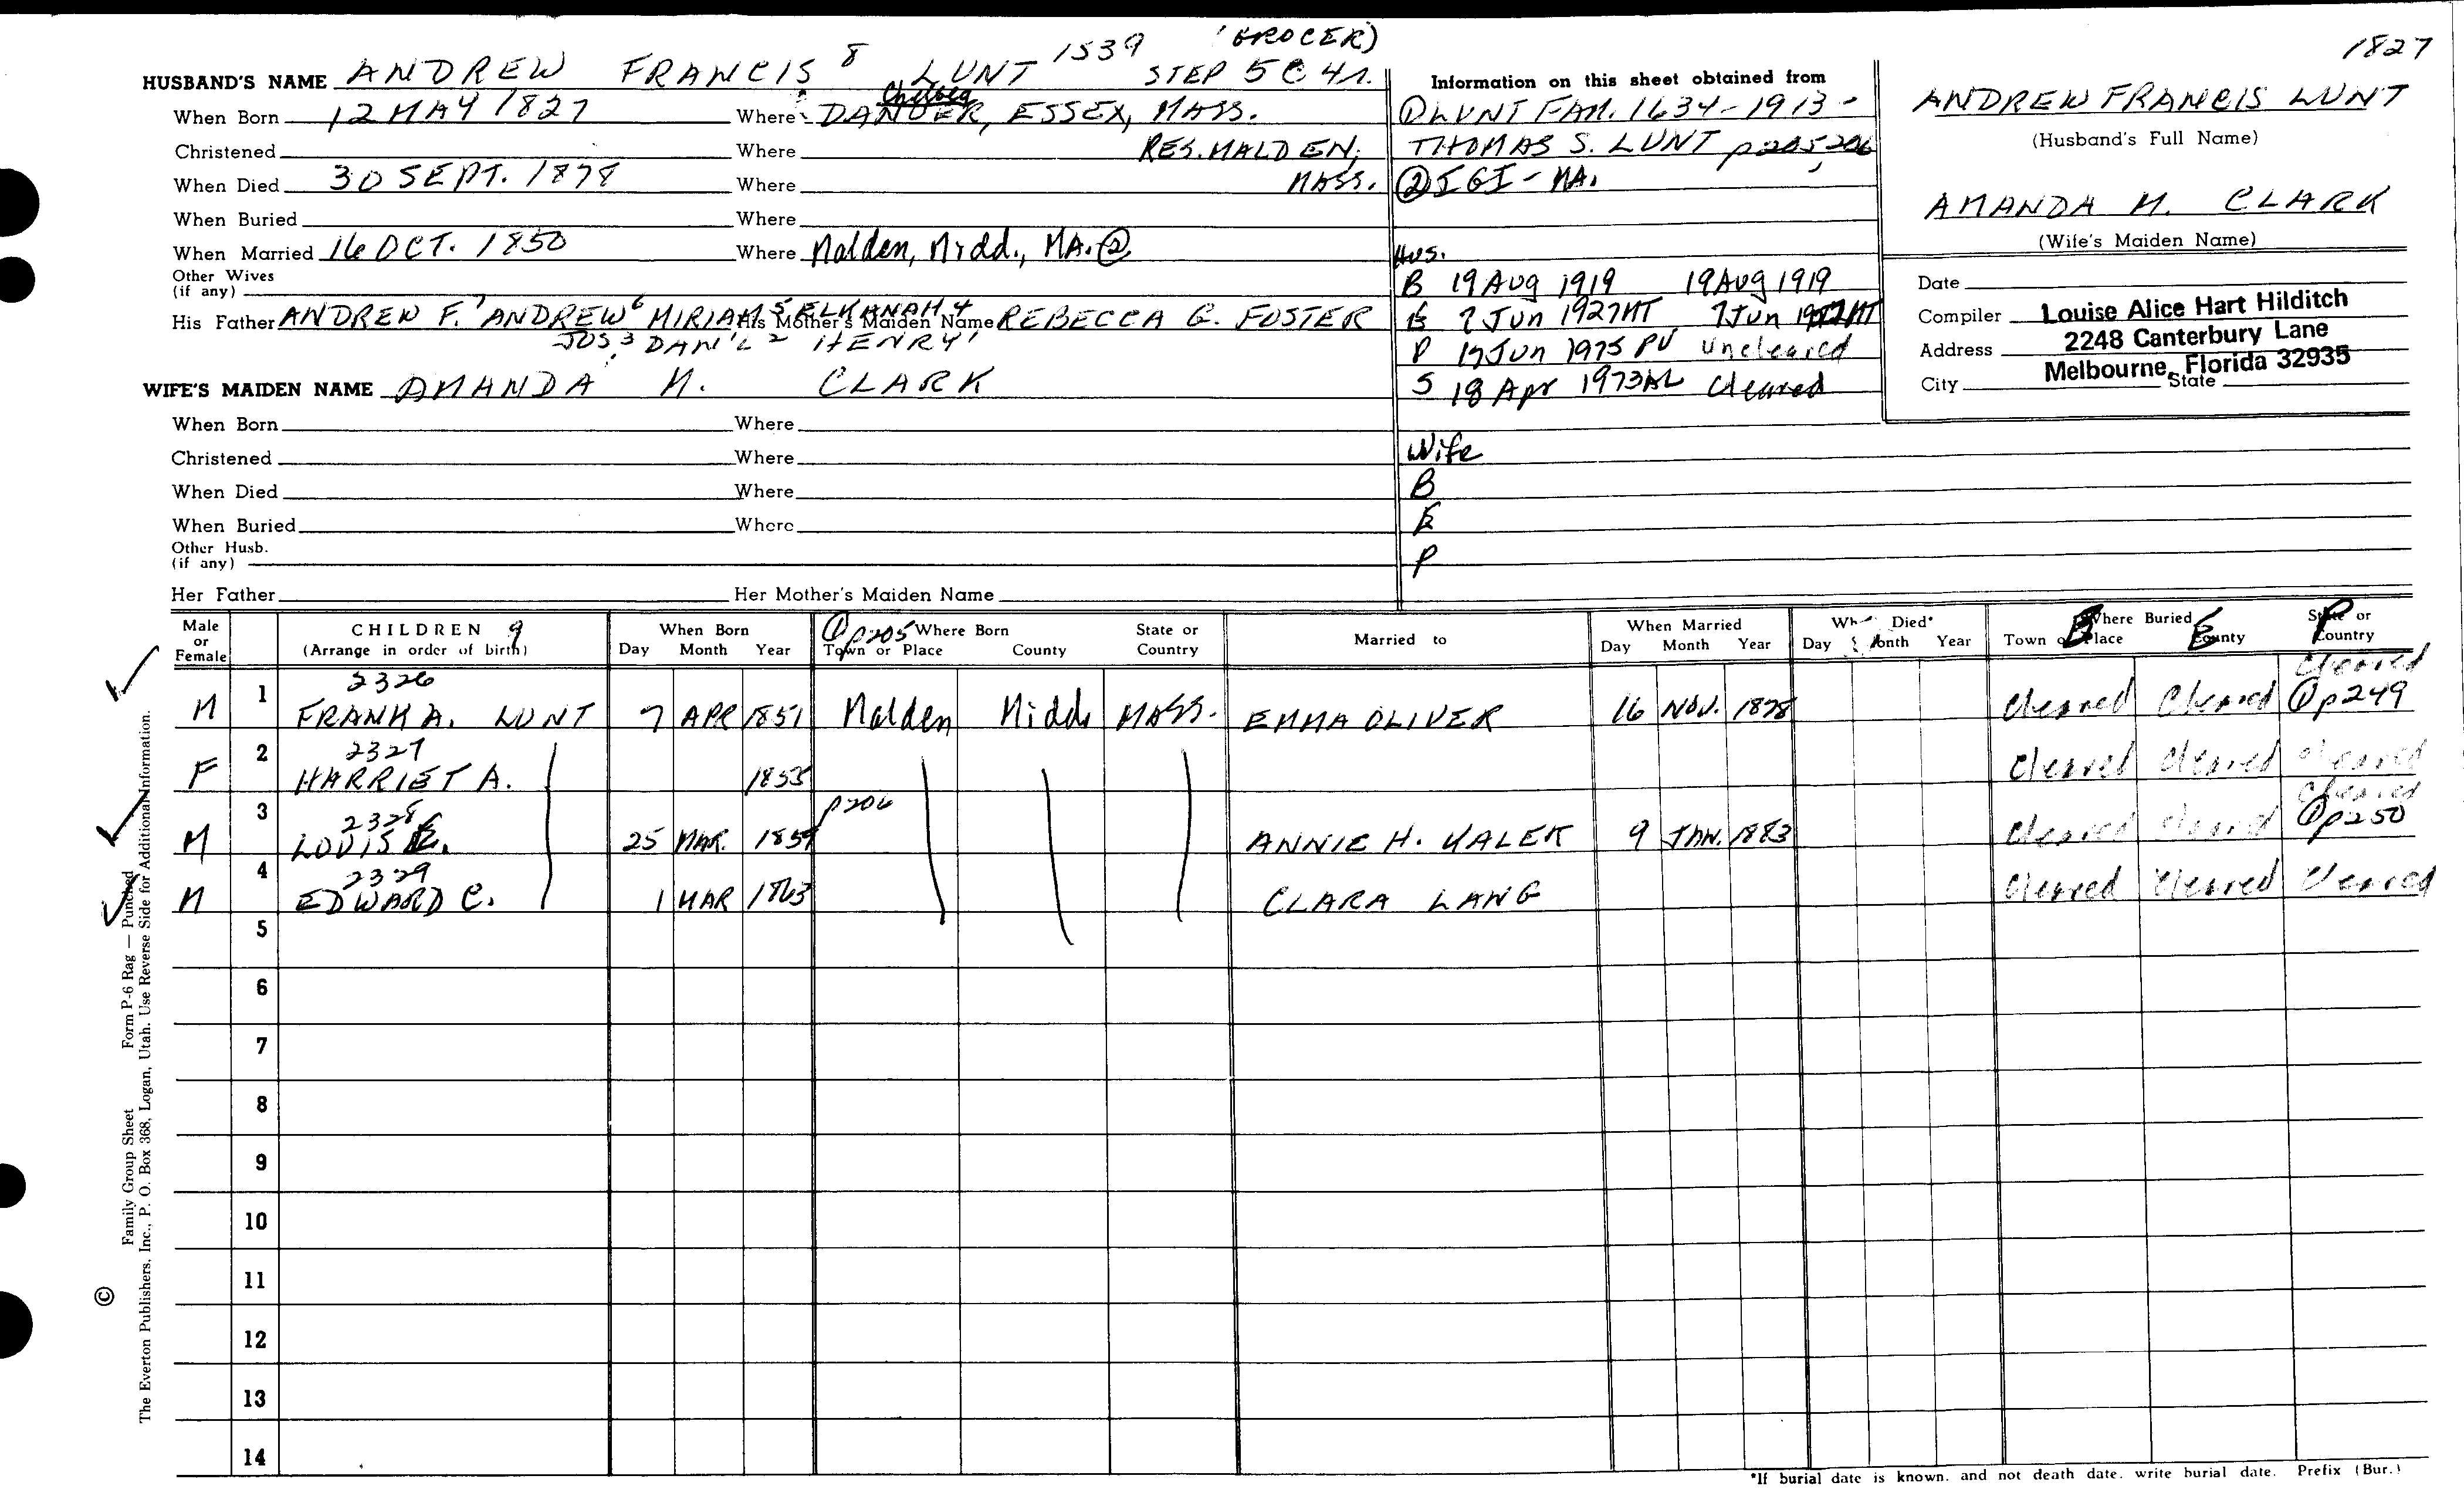 (GROCER)
1827
HUSBAND'S NAME ANDREW FRANCIS 8 LUNT 1539 STEP 5 C 41.
Information on this sheet obtained from
ANDREW FRANCIS LUNT
(Husband's Full Name)
Chelsea
When Born 12 MAY 1827 Where DANVER, ESSEX, MASS.
① LUNT FAM. 1634-1913-
Christened Where RES. MALDEN,
THOMAS S. LUNT p205,206
When Died 30 SEPT. 1878 Where MASS.
② IGI - MA.
AMANDA M. CLARK
(Wife's Maiden Name)
When Buried Where
When Married 16 OCT. 1850 Where Malden, Midd., MA. ②
HUS.
Other Wives
(if any)
B 19 Aug 1919 19 Aug 1919
His Father ANDREW F.7 ANDREW6 MIRIAM5 ELKANAH4 His Mother's Maiden Name REBECCA G. FOSTER
JOS3 DAN'L2 HENRY1
E 7 Jun 1927MT 7 Jun 1927MT
P 17 Jun 1975 PV Uncleared
S 18 Apr 1973AL Cleared
Date
Compiler Louise Alice Hart Hilditch
Address 2248 Canterbury Lane
Melbourne, Florida 32935
City State
WIFE'S MAIDEN NAME AMANDA M. CLARK
When Born Where
Christened Where
Wife
When Died Where
B
When Buried Where
E
Other Husb.
(if any)
P
Her Father Her Mother's Maiden Name
Male or Female
CHILDREN 9
(Arrange in order of birth)
When Born
Day Month Year
① p205 Where Born
Town or Place County State or Country
Married to
When Married
Day Month Year
When Died*
Day Month Year
Where Buried
Town or Place County State or Country
B E P
2326 Cleared
M 1 FRANK A. LUNT 7 APR 1851 Malden Midds MASS. EMMA OLIVER 16 NOV. 1878 Cleared Cleared ① p249
2327
F 2 HARRIET A. 1853 Cleared Cleared Cleared
2328 p206 Cleared
M 3 LOUIS 25 MAR. 1859 ANNIE H. 9 JAN. 1883 Cleared Cleared ① p250
2329
M 4 EDWARD C. 1 MAR 1863 CLARA LANG Cleared Cleared Cleared
5
6
7
8
9
10
11
12
13
14
*If burial date is known, and not death date, write burial date. Prefix (Bur.)
© Family Group Sheet Form P-6 Rag — Punched
The Everton Publishers, Inc., P. O. Box 368, Logan, Utah. Use Reverse Side for Additional Information.